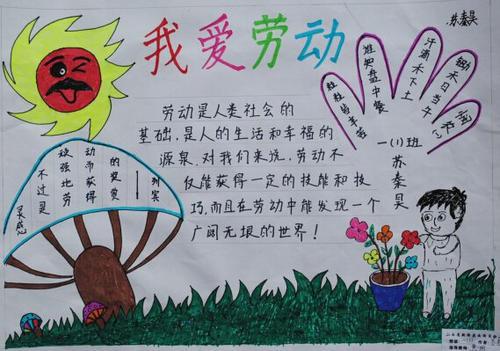 我爱劳动
苏秦昊
锄禾日当午
汗滴禾下土
谁知盘中餐
粒粒皆辛苦
一(1)班
苏秦昊
劳动是人类社会的
基础,是人的生活和幸福的
源泉,对我们来说,劳动不
仅能获得一定的技能和技
巧,而且在劳动中能发现一个
广阔无垠的世界!
灵感
不过是
顽强地劳
动而获得
的奖赏
——列宾